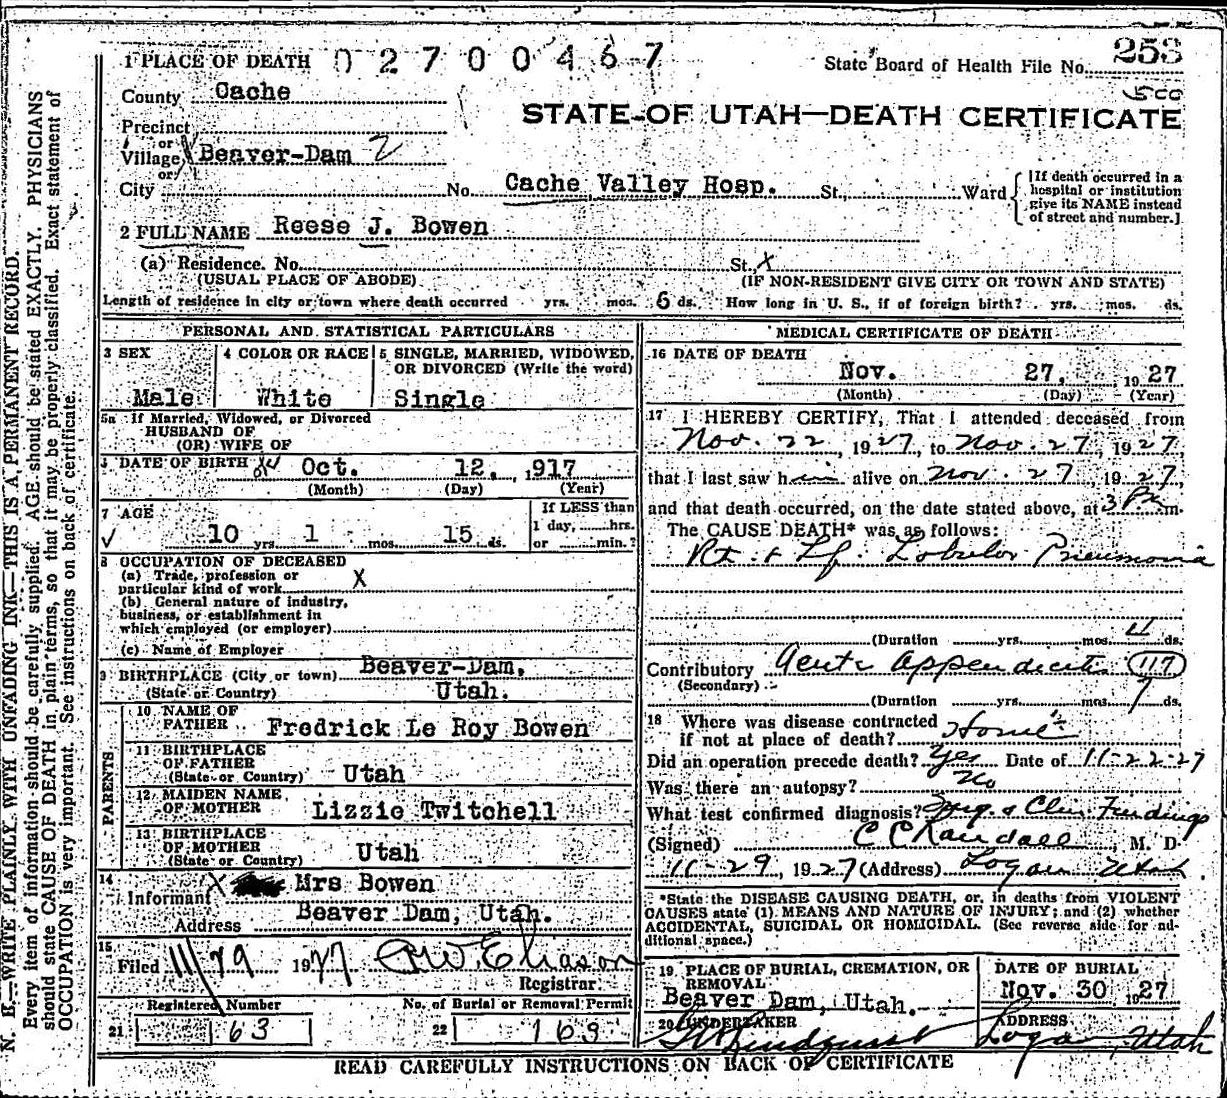 1 PLACE OF DEATH 02700467
State Board of Health File No. 253
County Cache
STATE OF UTAH—DEATH CERTIFICATE
Precinct
or
Village Beaver-Dam 2
or
City No. Cache Valley Hosp. St., Ward
[If death occurred in a
hospital or institution
give its NAME instead
of street and number.]
2 FULL NAME Reese J. Bowen
(a) Residence. No. St., X
(USUAL PLACE OF ABODE) (IF NON-RESIDENT GIVE CITY OR TOWN AND STATE)
Length of residence in city or town where death occurred yrs. mos. 6 ds. How long in U. S., if of foreign birth? yrs. mos. ds.
PERSONAL AND STATISTICAL PARTICULARS
3 SEX 4 COLOR OR RACE 5 SINGLE, MARRIED, WIDOWED,
OR DIVORCED (Write the word)
Male White Single
5a If Married, Widowed, or Divorced
HUSBAND OF
(OR) WIFE OF
DATE OF BIRTH Oct. 12, 1917
(Month) (Day) (Year)
7 AGE If LESS than
1 day, hrs.
10 yrs. 1 mos. 15 ds. or min.?
8 OCCUPATION OF DECEASED
(a) Trade, profession or
particular kind of work X
(b) General nature of industry,
business, or establishment in
which employed (or employer)
(c) Name of Employer
9 BIRTHPLACE (City or town) Beaver-Dam,
(State or Country) Utah.
PARENTS
10 NAME OF
FATHER Fredrick Le Roy Bowen
11 BIRTHPLACE
OF FATHER
(State or Country) Utah
12 MAIDEN NAME
OF MOTHER Lizzie Twitchell
13 BIRTHPLACE
OF MOTHER
(State or Country) Utah
14 Informant X Mrs Bowen
Address Beaver Dam, Utah.
15 Filed 11/29 1927 Eliason
Registrar
Registered Number No. of Burial or Removal Permit
21 63 22 163
MEDICAL CERTIFICATE OF DEATH
16 DATE OF DEATH
Nov. 27, 1927
(Month) (Day) (Year)
17 I HEREBY CERTIFY, That I attended deceased from
Nov. 22, 1927, to Nov. 27, 1927,
that I last saw him alive on Nov. 27, 1927,
and that death occurred, on the date stated above, at 3 P m.
The CAUSE DEATH* was as follows:
Rt. + Lf. Lobular Pneumonia
(Duration yrs. mos. 4 ds.
Contributory Acute Appendicitis 117
(Secondary)
(Duration yrs. mos. 7 ds.
18 Where was disease contracted
if not at place of death? Home
Did an operation precede death? Yes Date of 11-22-27
Was there an autopsy? No
What test confirmed diagnosis? Surg. & Clin Findings
(Signed) C C Randall, M. D.
11-29, 1927 (Address) Logan Utah
*State the DISEASE CAUSING DEATH, or, in deaths from VIOLENT
CAUSES state (1) MEANS AND NATURE OF INJURY; and (2) whether
ACCIDENTAL, SUICIDAL OR HOMICIDAL. (See reverse side for ad-
ditional space.)
19 PLACE OF BURIAL, CREMATION, OR
REMOVAL
Beaver Dam, Utah.
DATE OF BURIAL
Nov. 30 1927
20 UNDERTAKER Lindquist
ADDRESS
Logan, Utah
READ CAREFULLY INSTRUCTIONS ON BACK OF CERTIFICATE
N. B.—WRITE PLAINLY, WITH UNFADING INK—THIS IS A PERMANENT RECORD.
Every item of information should be carefully supplied. AGE should be stated EXACTLY. PHYSICIANS
should state CAUSE OF DEATH in plain terms, so that it may be properly classified. Exact statement of
OCCUPATION is very important. See instructions on back of certificate.